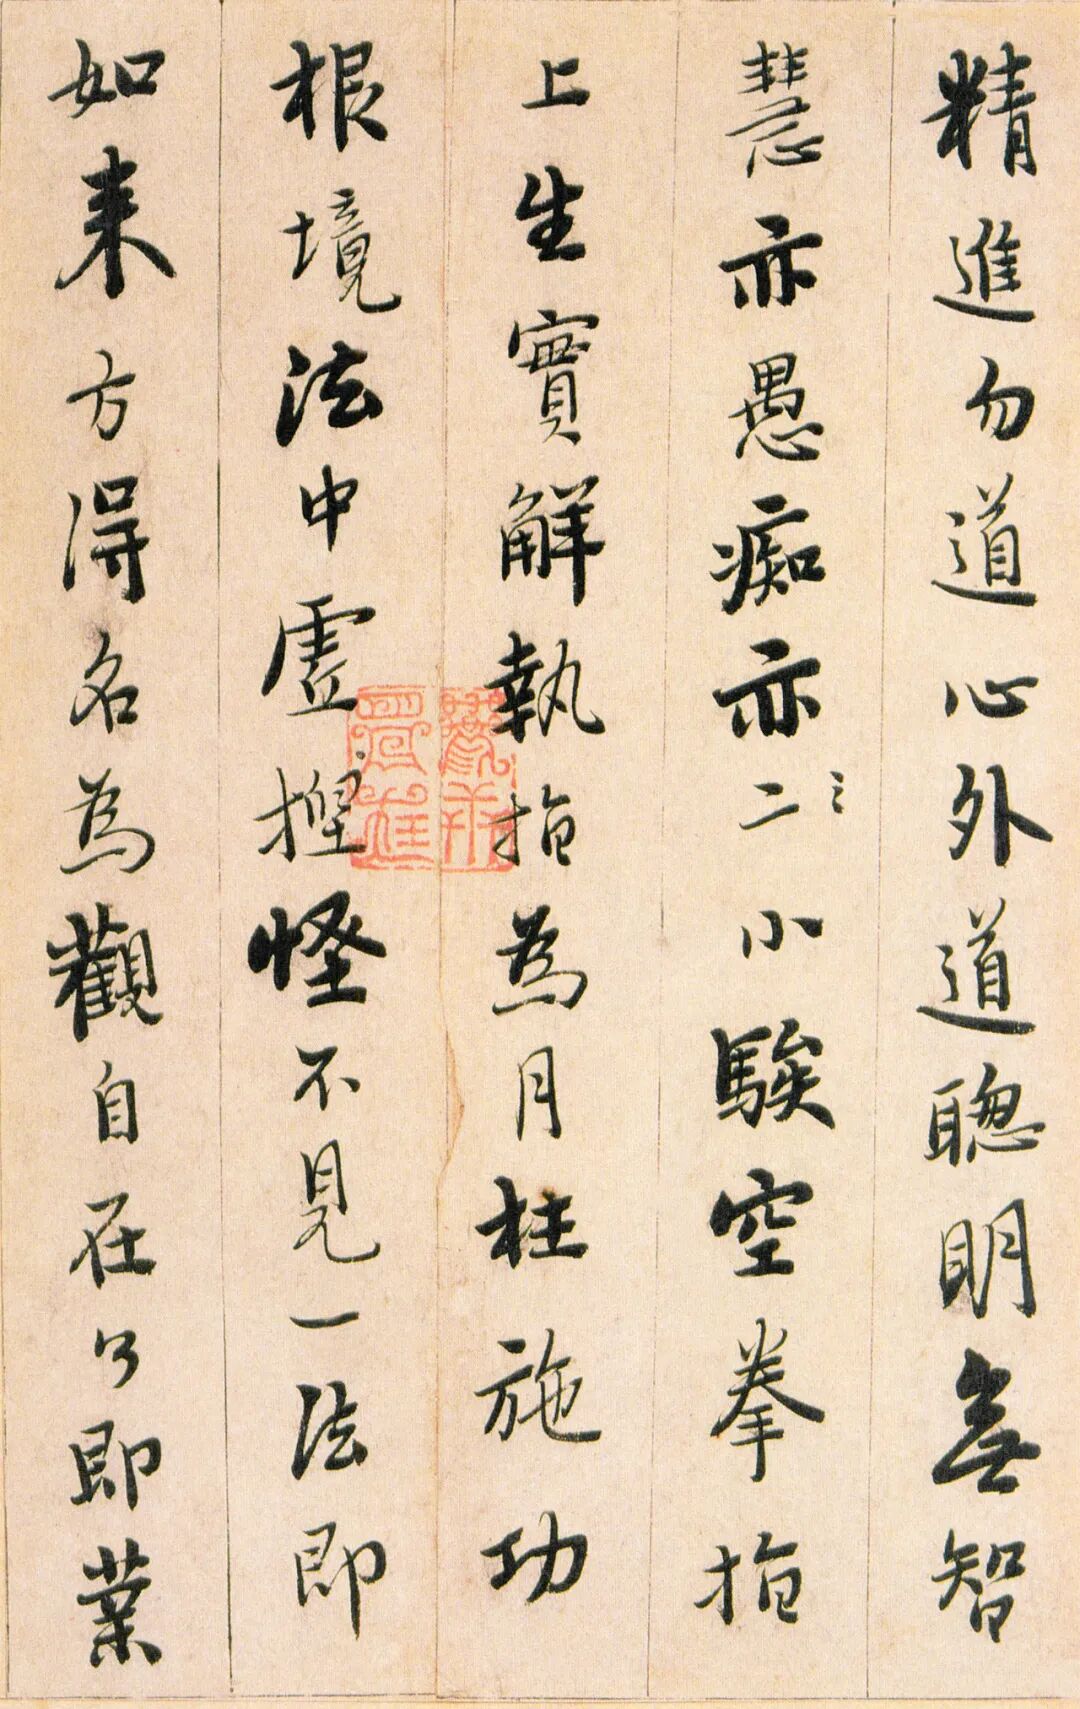 精進勿道心外道聰明無智
慧亦愚癡亦二小騃空拳指
上生實解執指為月枉施功
根境法中虛捏怪不見一法即
如来方得名為觀自在了即業